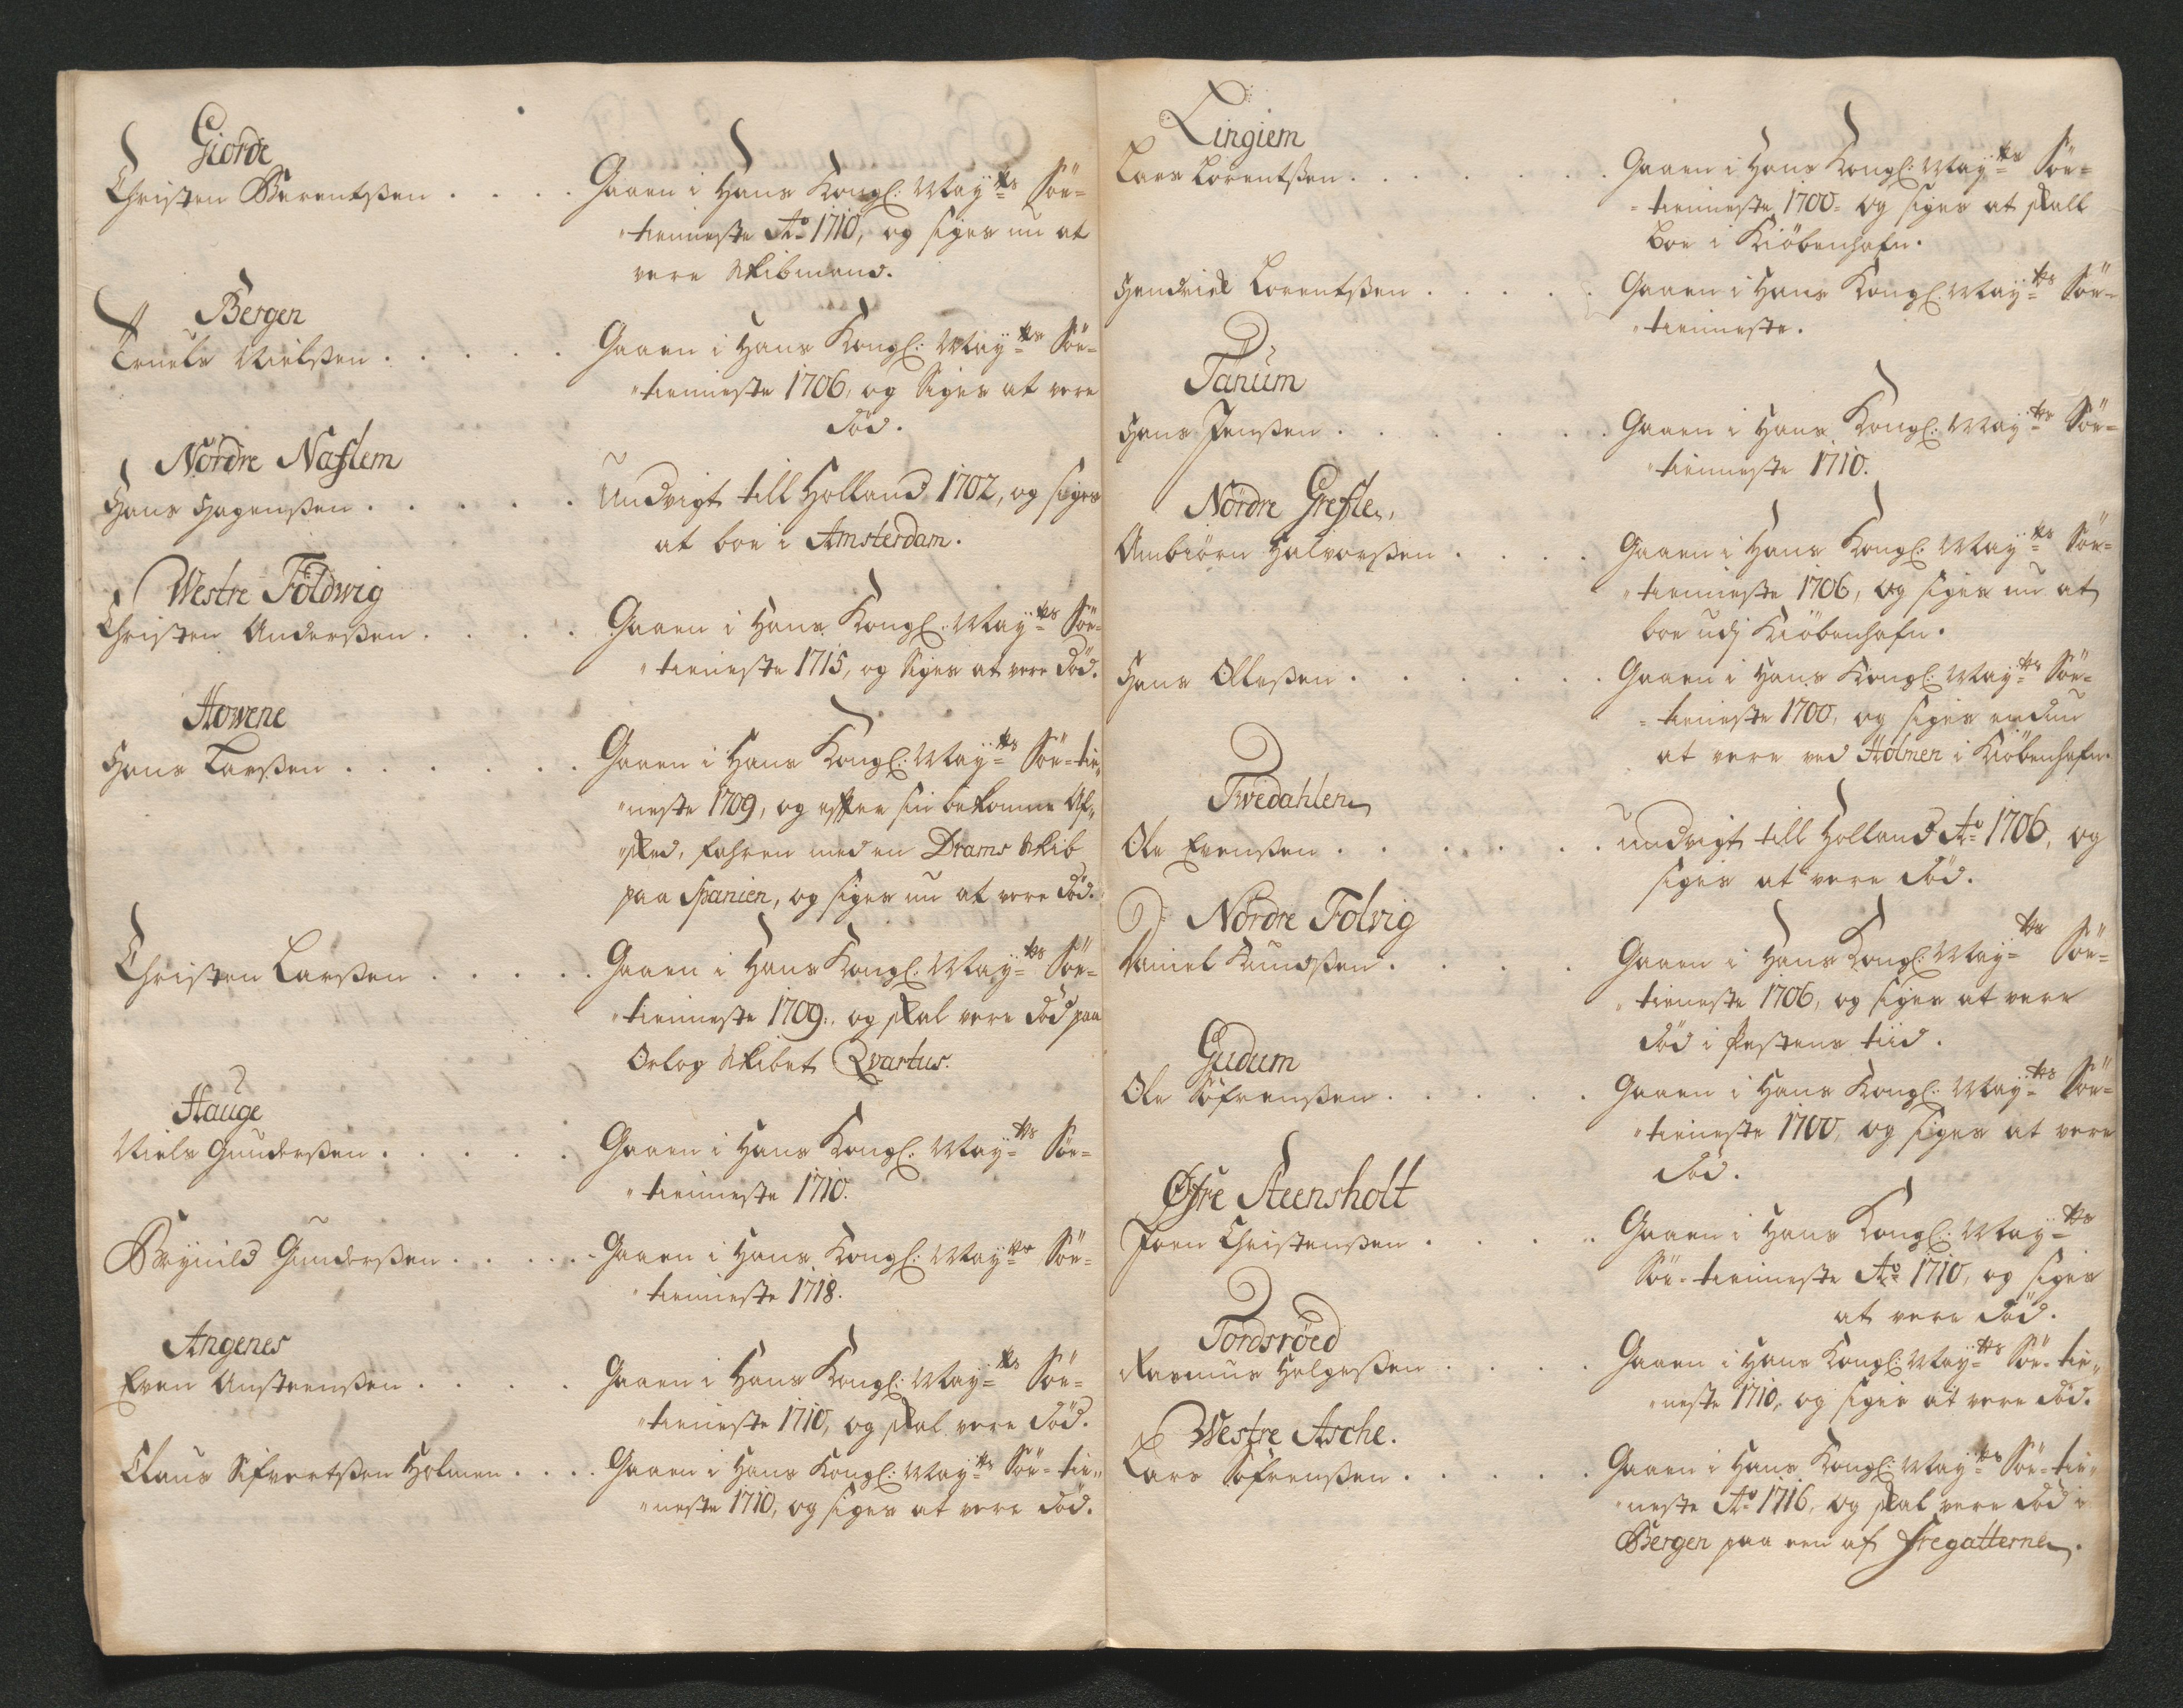 Giorde
Christen Berentsen . . . . Gaaen i Hans Kongl: May:ts Söe=
"tienneste Ao 1710, og siges nu at
vere Skibmand.
Bergen
Truels Nielsen . . . . . Gaaen i Hans Kongl: May:ts Söe=
"tienneste 1706, og Siges at vere
död.
Nordre Naslem
Hans Hagensen . . . . . Undvigt till Holland 1702, og siges
at boe i Amsterdam.
Westre Földwig
Christen Andersen . . . . Gaaen i Hans Kongl: May:ts Söe=
"tieneste 1715, og Siges at vere död.
Howene
Hans Larsen . . . . . . Gaaen i Hans Kongl: May:ts Söe=tie"
"neste 1709, og efter sin bekomne Af"
"sked, fahren med en Drams Skib
paa Spanien, og siges nu at vere död.
Christen Larsen . . . . . Gaaen i Hans Kongl: May:ts Söe=
"tienneste 1709, og skal vere död paa
Orlog Skibet Qvartus.
Hauge
Niels Gundersen . . . . . Gaaen i Hans Kongl: May:ts Söe=
"tienneste 1710.
Brynild Gundersen . . . . . Gaaen i Hans Kongl: May:ts Söe=
"tienneste 1718.
Angenes
Even Austensen . . . . . Gaaen i Hans Kongl: May:ts Söe=
"tieneste 1710, og skal vere död.
Claus Sifvertsen Holmen . . . . Gaaen i Hans Kongl: May:ts Söe=tie"
"neste 1710, og siges at vere död.
Lingiem
Lars Lorentsen . . . . . . Gaaen i Hans Kongl: May:ts Söe=
=tienneste 1700= og siges at skall
boe i Kiöbenhafn.
Hendrick Lorentsen . . . . . Gaaen i Hans Kongl: May:ts Söe=
"tienneste.
Tanum
Hans Jensen . . . . . . Gaaen i Hans Kongl: May:ts Söe=
"tienneste 1710.
Nordre Gresle
Ambiörn Halvorsen . . . . Gaaen i Hans Kongl: May:ts Söe=
"tienneste 1706, og siges nu at
boe udj Kiöbenhafn.
Hans Ollesen . . . . . . Gaaen i Hans Kongl: May:ts Söe=
=tieneste 1700, og siges endnu
at vere ved Holmen i Kiöbenhafn.
Tvedahlen
Ole Evensen . . . . . . undvigt till Holland Ao 1706, og
siges at vere död.
Nordre Folvig
Daniel Knudsen . . . . Gaaen i Hans Kongl: May:ts Söe=
"tieneste 1706, og siges at vere
död i Pestens tiid.
Gudum
Ole Söfrensen . . . . . Gaaen i Hans Kongl: May:ts Söe=
"tieneste 1700, og siges at vere
död.
Øfre Steensholt
Joen Christensen . . . . Gaaen i Hans Kongl: May:ts
Söe=tienneste Ao 1710, og siges
at vere död.
Tordsröed
Rasmus Helgesen . . . . Gaaen i Hans Kongl: May:ts Söe=tie"
"neste 1710, og siges at vere död.
Westre Asche.
Lars Söfrensen . . . . . Gaaen i Hans Kongl: May:ts Söe=tie"
"neste Ao 1716, og skal vere död i
Bergen paa een af Fregatterne.